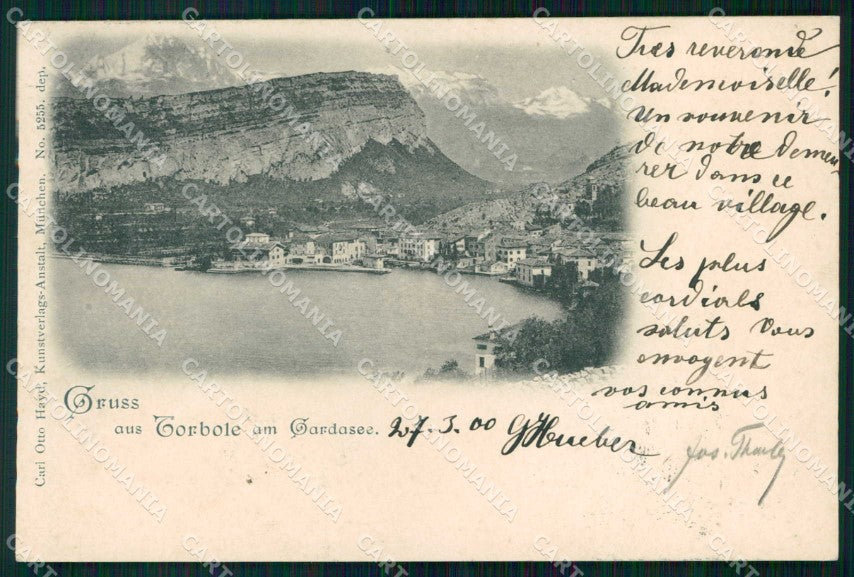 Carl Otto Hayd, Kunstverlags-Anstalt, München. No. 5255. dep.
Tres reverende
Mademoiselle!
Un souvenir
de notre demeu-
rer dans ce
beau village.
Les plus
cordials
saluts Vous
envoyent
vos connus
amis
Gruss
aus Torbole am Gardasee.
27.3.00 G Hueber
Jos.
CARTOLINOMANIA